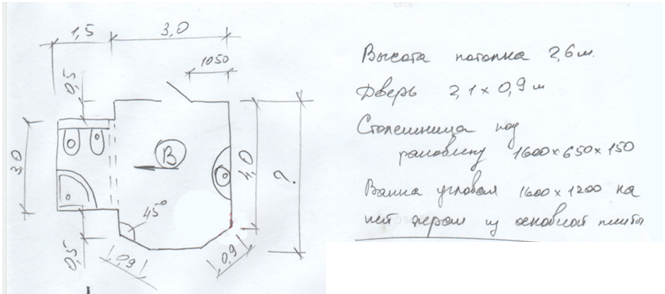 1,5
3,0
1050
0,5
3,0
В
4,0
?
45°
0,5
0,9
0,9
Высота потолка 2,6 м.
Дверь 2,1 x 0,9 м
Столешница под
раковину 1600x650x150
Ванна угловая 1600x1200 на
ней экран из основной плитки